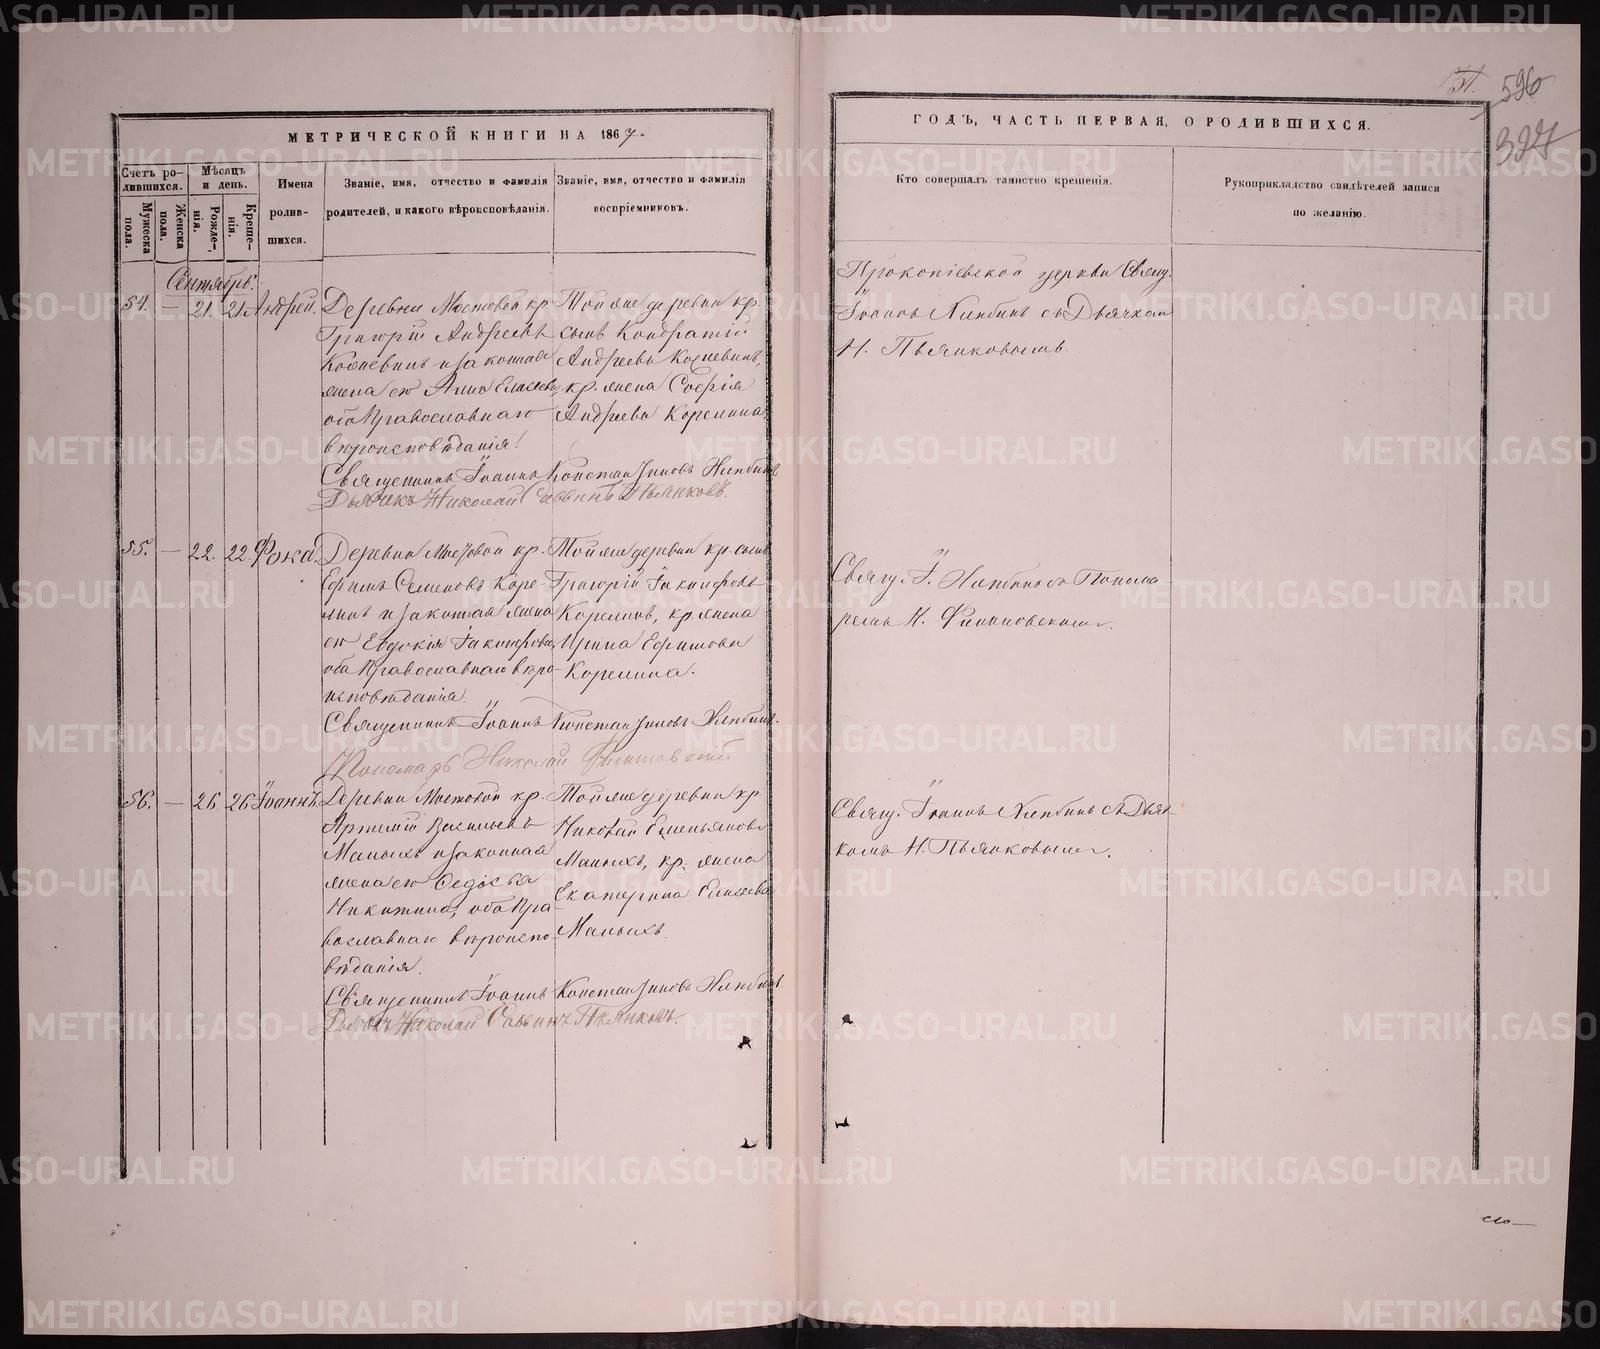 МЕТРИЧЕСКОЙ КНИГИ НА 1867.
Счетъ ро-
дившихся.
Мужеска
пола.
Женска
пола.
Мѣсяцъ
и день.
Рожде-
нія.
Креще-
нія.
Имена
родив-
шихся.
Званіе, имя, отчество и фамилія
родителей, и какого вѣроисповѣданія.
Званіе, имя, отчество и фамилія
воспріемниковъ.
Сентябрь.
54. — 21. 21 Андрей.
Деревни Мостовой кр.
Григорій Андреевъ
и законная
жена его Анна Елисеева,
оба Православнаго
вѣроисповѣданія.
Той же деревни кр.
сынъ Кондратій
Андреевъ
кр. жена Софія
Андреева Корелина.
Священникъ Іоаннъ Константиновъ
Дьячекъ Николай Саввинъ Пьянковъ.
55. — 22. 22. Фока.
Деревни Мостовой кр.
Ефимъ Семеновъ Коре-
линъ и законная жена
его Евдокія Іакинфова,
оба Православнаго вѣро-
исповѣданія.
Той же деревни кр. сынъ
Григорій Іакинфовъ
Корелинъ, кр. жена
Ирина Ефимова
Корелина.
Священникъ Іоаннъ Константиновъ
Пономарь Николай
56. — 26 26 Іоаннъ.
Деревни Мостовой кр.
Артемій Васильевъ
Малыхъ и законная
жена его Федосья
Никитина, оба Пра-
вославнаго вѣроиспо-
вѣданія.
Той же деревни кр.
Николай Емельяновъ
Малыхъ, кр. жена
Екатерина Елисеева
Малыхъ.
Священникъ Іоаннъ Константиновъ
Дьячекъ Николай Саввинъ Пьянковъ.
ГОДЪ, ЧАСТЬ ПЕРВАЯ, О РОДИВШИХСЯ.
51.
526
327
Кто совершалъ таинство крещенія.
Рукоприкладство свидѣтелей записи
по желанію.
Прокопіевской церкви Свящ.
Іоаннъ съ Дьячкомъ
Н. Пьянковымъ.
Свящ. І. съ Понома-
ремъ Н.
Свящ. Іоаннъ съ Дьяч-
комъ Н. Пьянковымъ.
METRIKI.GASO-URAL.RU